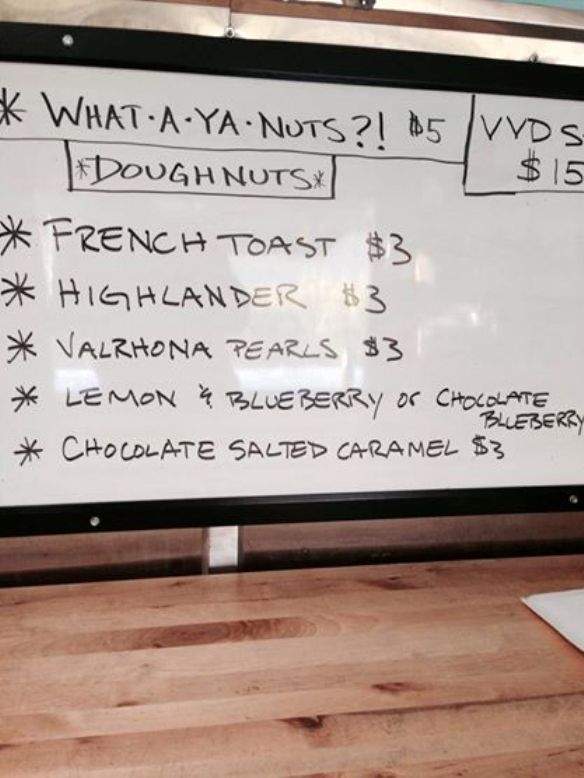 * WHAT·A·YA·NUTS?! $5
VVDS
$15
*DOUGHNUTS*
* FRENCH TOAST $3
* HIGHLANDER $3
* VALRHONA PEARLS $3
* LEMON & BLUEBERRY or CHOCOLATE
BLUEBERRY
* CHOCOLATE SALTED CARAMEL $3